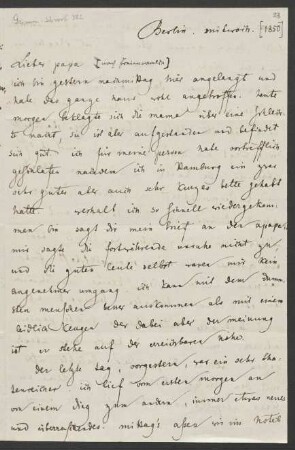 Berlin. mittwoch. [1850]
Lieber papa
ich bin gestern nachmittag hier angelangt und
habe das ganze haus wohl angetroffen. heute
morgen beklagte sich die mama über eine schlechte
nacht, sie ist aber aufgestanden und befindet
sich gut. ich für meine person habe vortrefflich
geschlafen nachdem ich in Hamburg ein zwar
sehr gutes aber auch sehr kurzes bette gehabt
hatte. weshalb ich so schnell wiedergekom
men bin sagt dir mein brief an den
mir sagte die fortwährende unruhe nicht zu
und die guten leute selbst waren mir kein
angenehmer umgang. ich kann mit dem dümm
sten menschen besser auskommen als mit einem
leidlich klugen der dabei aber der meinung
ist er stehe auf der erreichbaren höhe.
der letzte tag, vorgestern, war ein sehr
ich lief vom ersten morgen an
von einem ding zum andern, immer etwas neues
und überraschendes. mittags assen wir im hotel